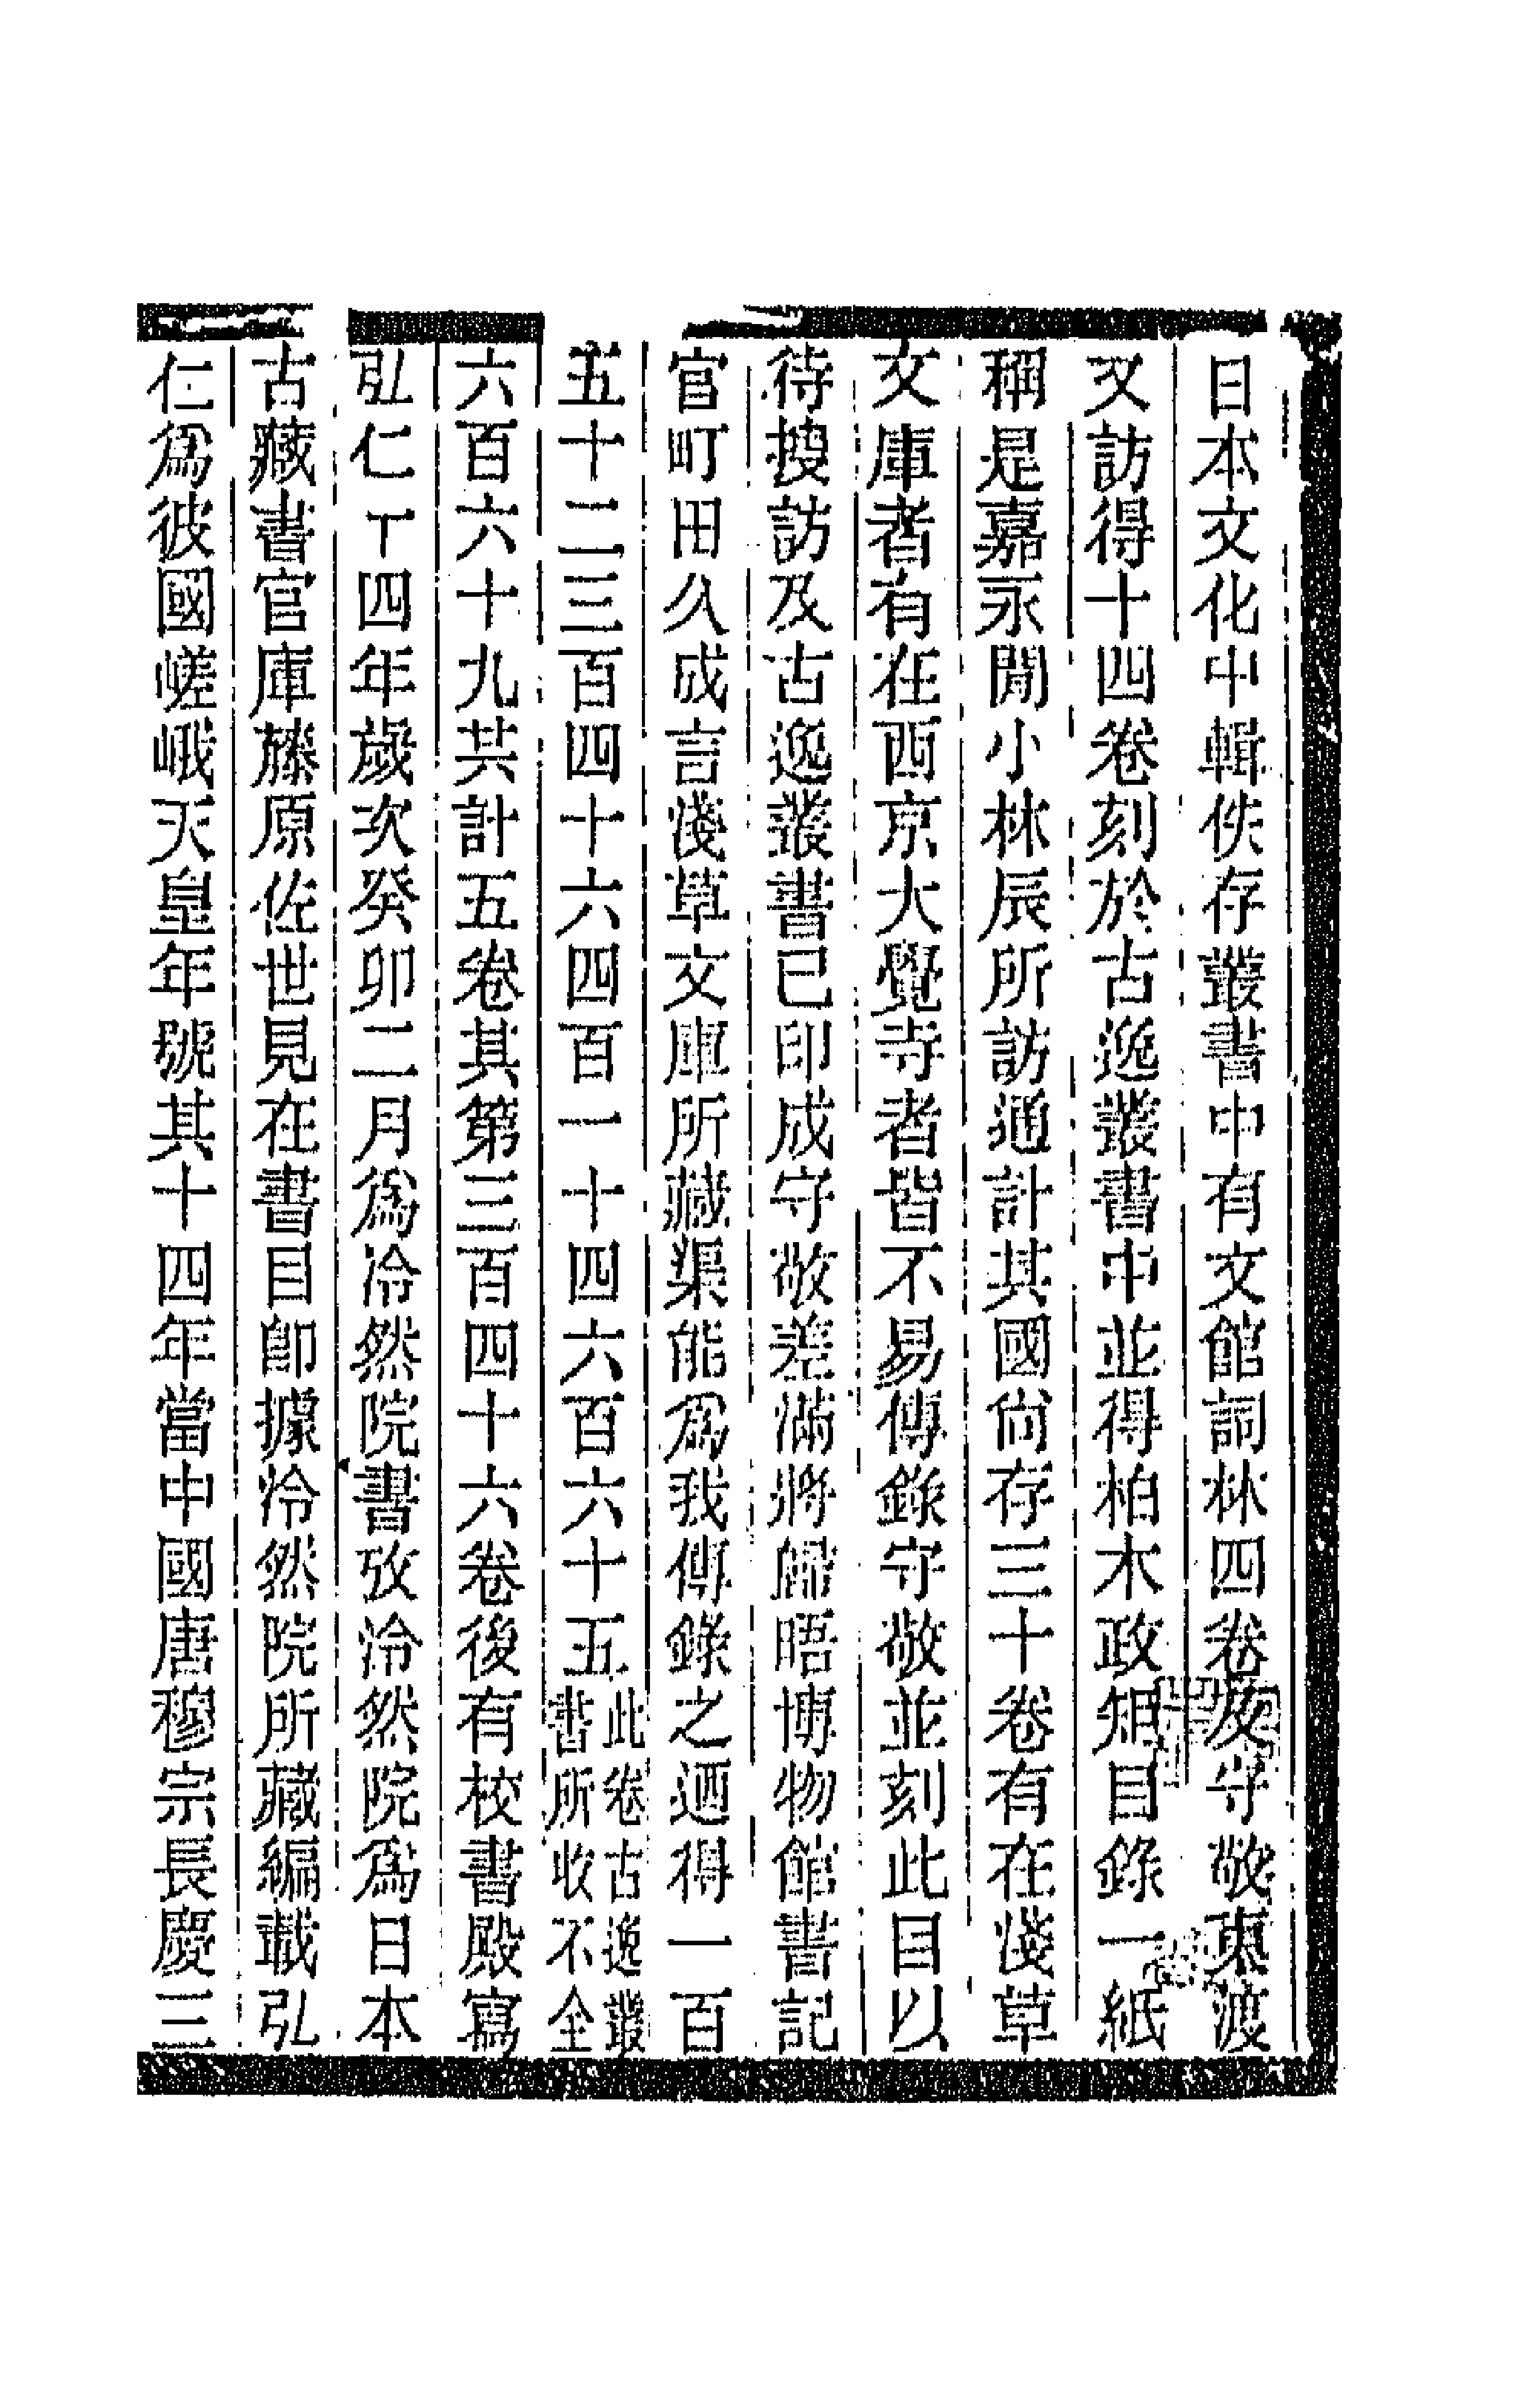 日本文化中輯佚存叢書中有文館詞林四卷及守敬東渡
又訪得十四卷刻於古逸叢書中並得柏木政矩目錄一紙
稱是嘉永閒小林辰所訪通計其國尙存三十卷有在淺草
文庫者有在西京大覺寺者皆不易傳錄守敬並刻此目以
待搜訪及古逸叢書已印成守敬差滿將歸晤博物館書記
官町田久成言淺草文庫所藏渠能爲我傳錄之迺得一百
五十二三百四十六四百一十四六百六十五此卷古逸叢書所收不全
六百六十九共計五卷其第三百四十六卷後有校書殿寫
弘仁十四年歲次癸卯二月爲冷然院書攷冷然院爲日本
古藏書官庫藤原佐世見在書目卽據冷然院所藏編載弘
仁爲彼國嵯峨天皇年號其十四年當中國唐穆宗長慶三